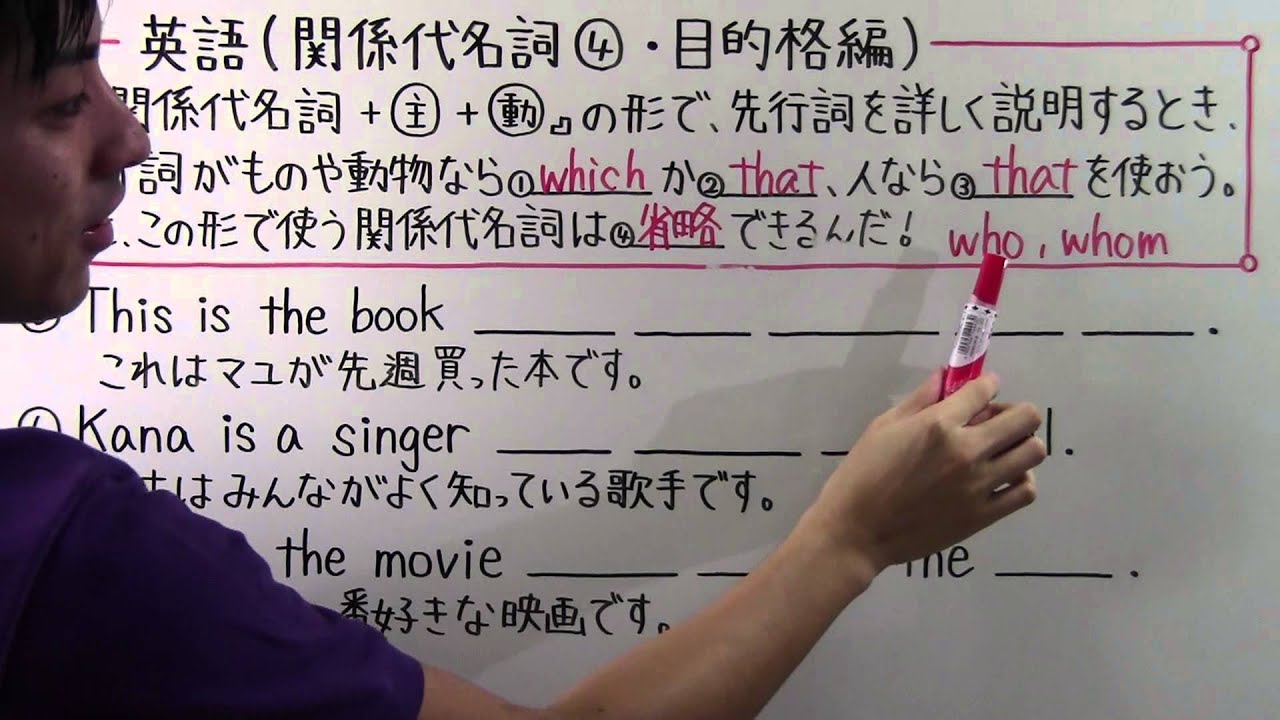 英語(関係代名詞④・目的格編)
関係代名詞+主+動』の形で、先行詞を詳しく説明するとき、
詞がものや動物なら①whichか②that、人なら③thatを使おう。
、この形で使う関係代名詞は④省略できるんだ! who, whom
This is the book ____ ____ ____ ____ ____.
これはマユが先週買った本です。
Kana is a singer ____ ____ l.
はみんながよく知っている歌手です。
the movie ____ ____ the ____.
番好きな映画です。